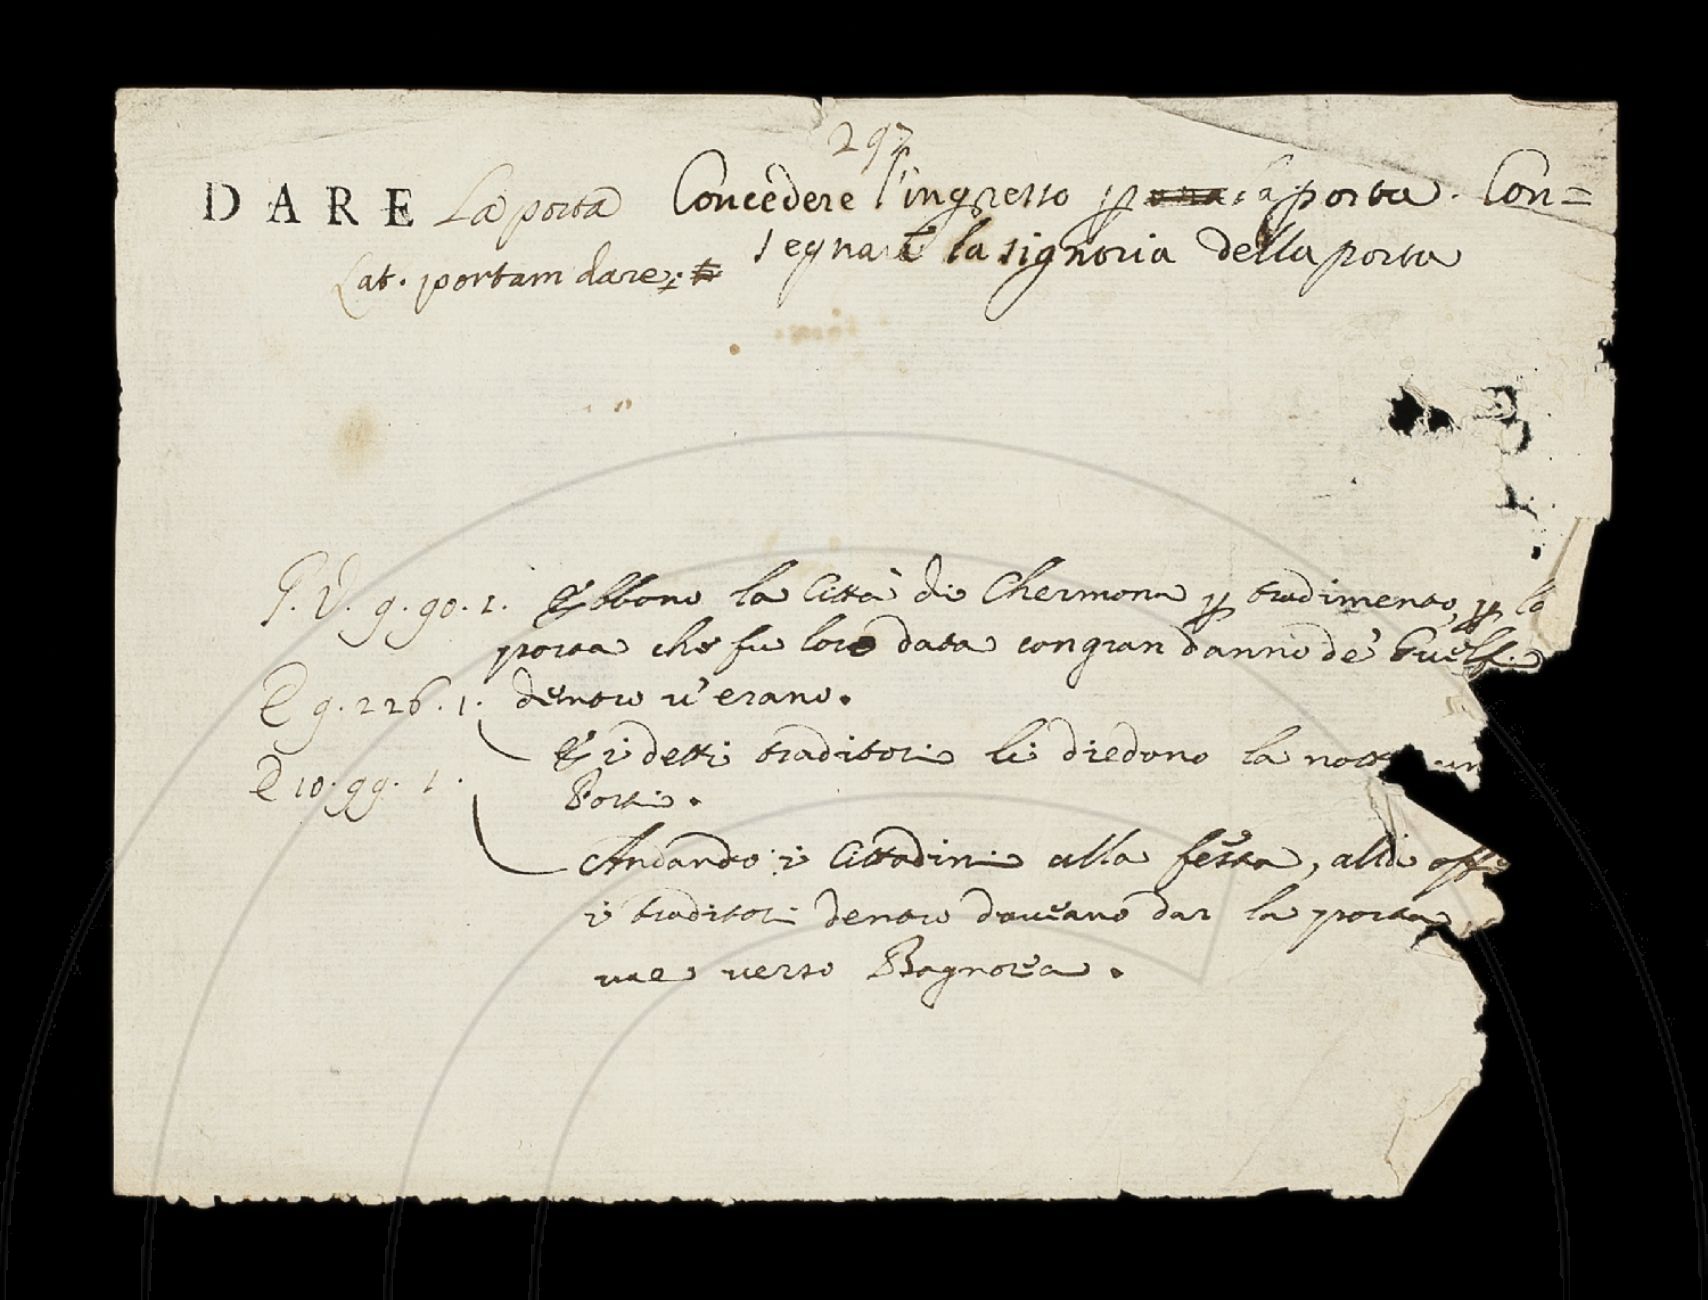 297
DARE La porta Concedere l'ingresso p la porta. Con=
Lat. portam dare. segnare la signoria della porta
G. V. 9. 90. 1. Ebbono la Città di Chermona p tradimento, p la
porta che fu loro data con gran danno de' Guelf
E 9. 226. 1. dentro v'erano.
E i detti traditori li diedono la nott un
E 10. 99. 1. Porta.
Andando i Cittadini alla festa, alla off
i traditori dentro doveano dar la porta
vae verso Bagnorea.